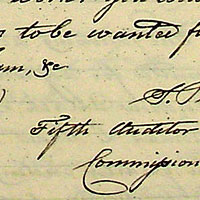 to be wanted f
am, &c
S.
Fifth Auditor
Commission